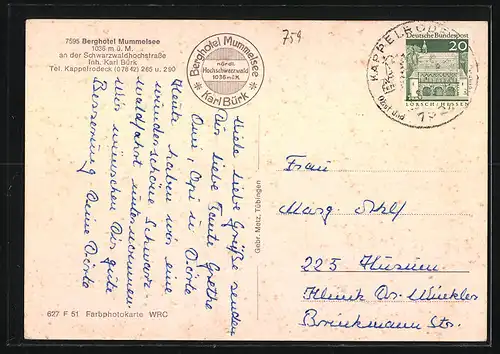 7595 Berghotel Mummelsee
1036 m ü. M.
an der Schwarzwaldhochstraße
Inh. Karl Bürk
Tel. Kappelrodeck (07842) 265 u. 290
Berghotel Mummelsee
nördl.
Hochschwarzwald
1036 m ü.M.
Karl Bürk
759
KAPPELRODECK
Deutsche Bundespost
20
LORSCH/HESSEN
Viele liebe Grüße senden
Dir liebe Tante Grethe
Omi, Opi u. Dörte
Heute haben wir eine
wunderschöne Schwarz-
waldfahrt unternommen.
Wir wünschen Dir gute
Besserung Deine Dörte
Gebr. Metz, Tübingen
Frau
Marg.
225 Husum
Klinik Dr. Winkler
Brinkmann Str.
627 F 51 Farbphotokarte WRC